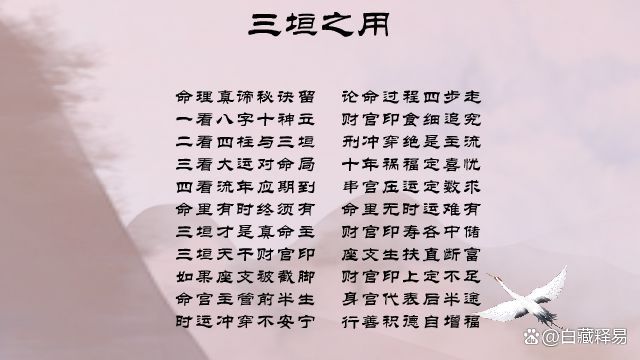 三垣之用
命理真谛秘诀留 论命过程四步走
一看八字十神立 财官印食细追究
二看四柱与三垣 刑冲穿绝是主流
三看大运对命局 十年祸福定喜忧
四看流年应期到 串宫压运定数求
命里有时终须有 命里无时运难有
三垣才是真命主 财官印寿各中储
三垣天干财官印 座支生扶直断富
如果座支被截脚 财官印上定不足
命宫主管前半生 身宫代表后半途
时运冲穿不安宁 行善积德自增福
白藏释易